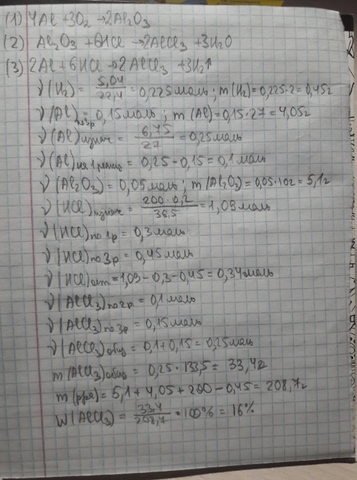 (1) 4Al + 3O₂ → 2Al₂O₃
(2) Al₂O₃ + 6HCl → 2AlCl₃ + 3H₂O
(3) 2Al + 6HCl → 2AlCl₃ + 3H₂↑
ν(H₂) = 5,04/22,4 = 0,225 моль; m(H₂) = 0,225·2 = 0,45г
ν(Al)по 3р = 0,15 моль; m(Al) = 0,15·27 = 4,05г
ν(Al)изнач = 6,75/27 = 0,25 моль
ν(Al)на 1 реакц = 0,25 - 0,15 = 0,1 моль
ν(Al₂O₃) = 0,05 моль; m(Al₂O₃) = 0,05·102 = 5,1г
ν(HCl)изнач = 200·0,2/36,5 = 1,09 моль
ν(HCl)по 2р = 0,3 моль
ν(HCl)по 3р = 0,45 моль
ν(HCl)ост = 1,09 - 0,3 - 0,45 = 0,34 моль
ν(AlCl₃)по 2р = 0,1 моль
ν(AlCl₃)по 3р = 0,15 моль
ν(AlCl₃)общ = 0,1 + 0,15 = 0,25 моль
m(AlCl₃)общ = 0,25·133,5 = 33,4г
m(рра) = 5,1 + 4,05 + 200 - 0,45 = 208,7г
W(AlCl₃) = 33,4/208,7 · 100% = 16%